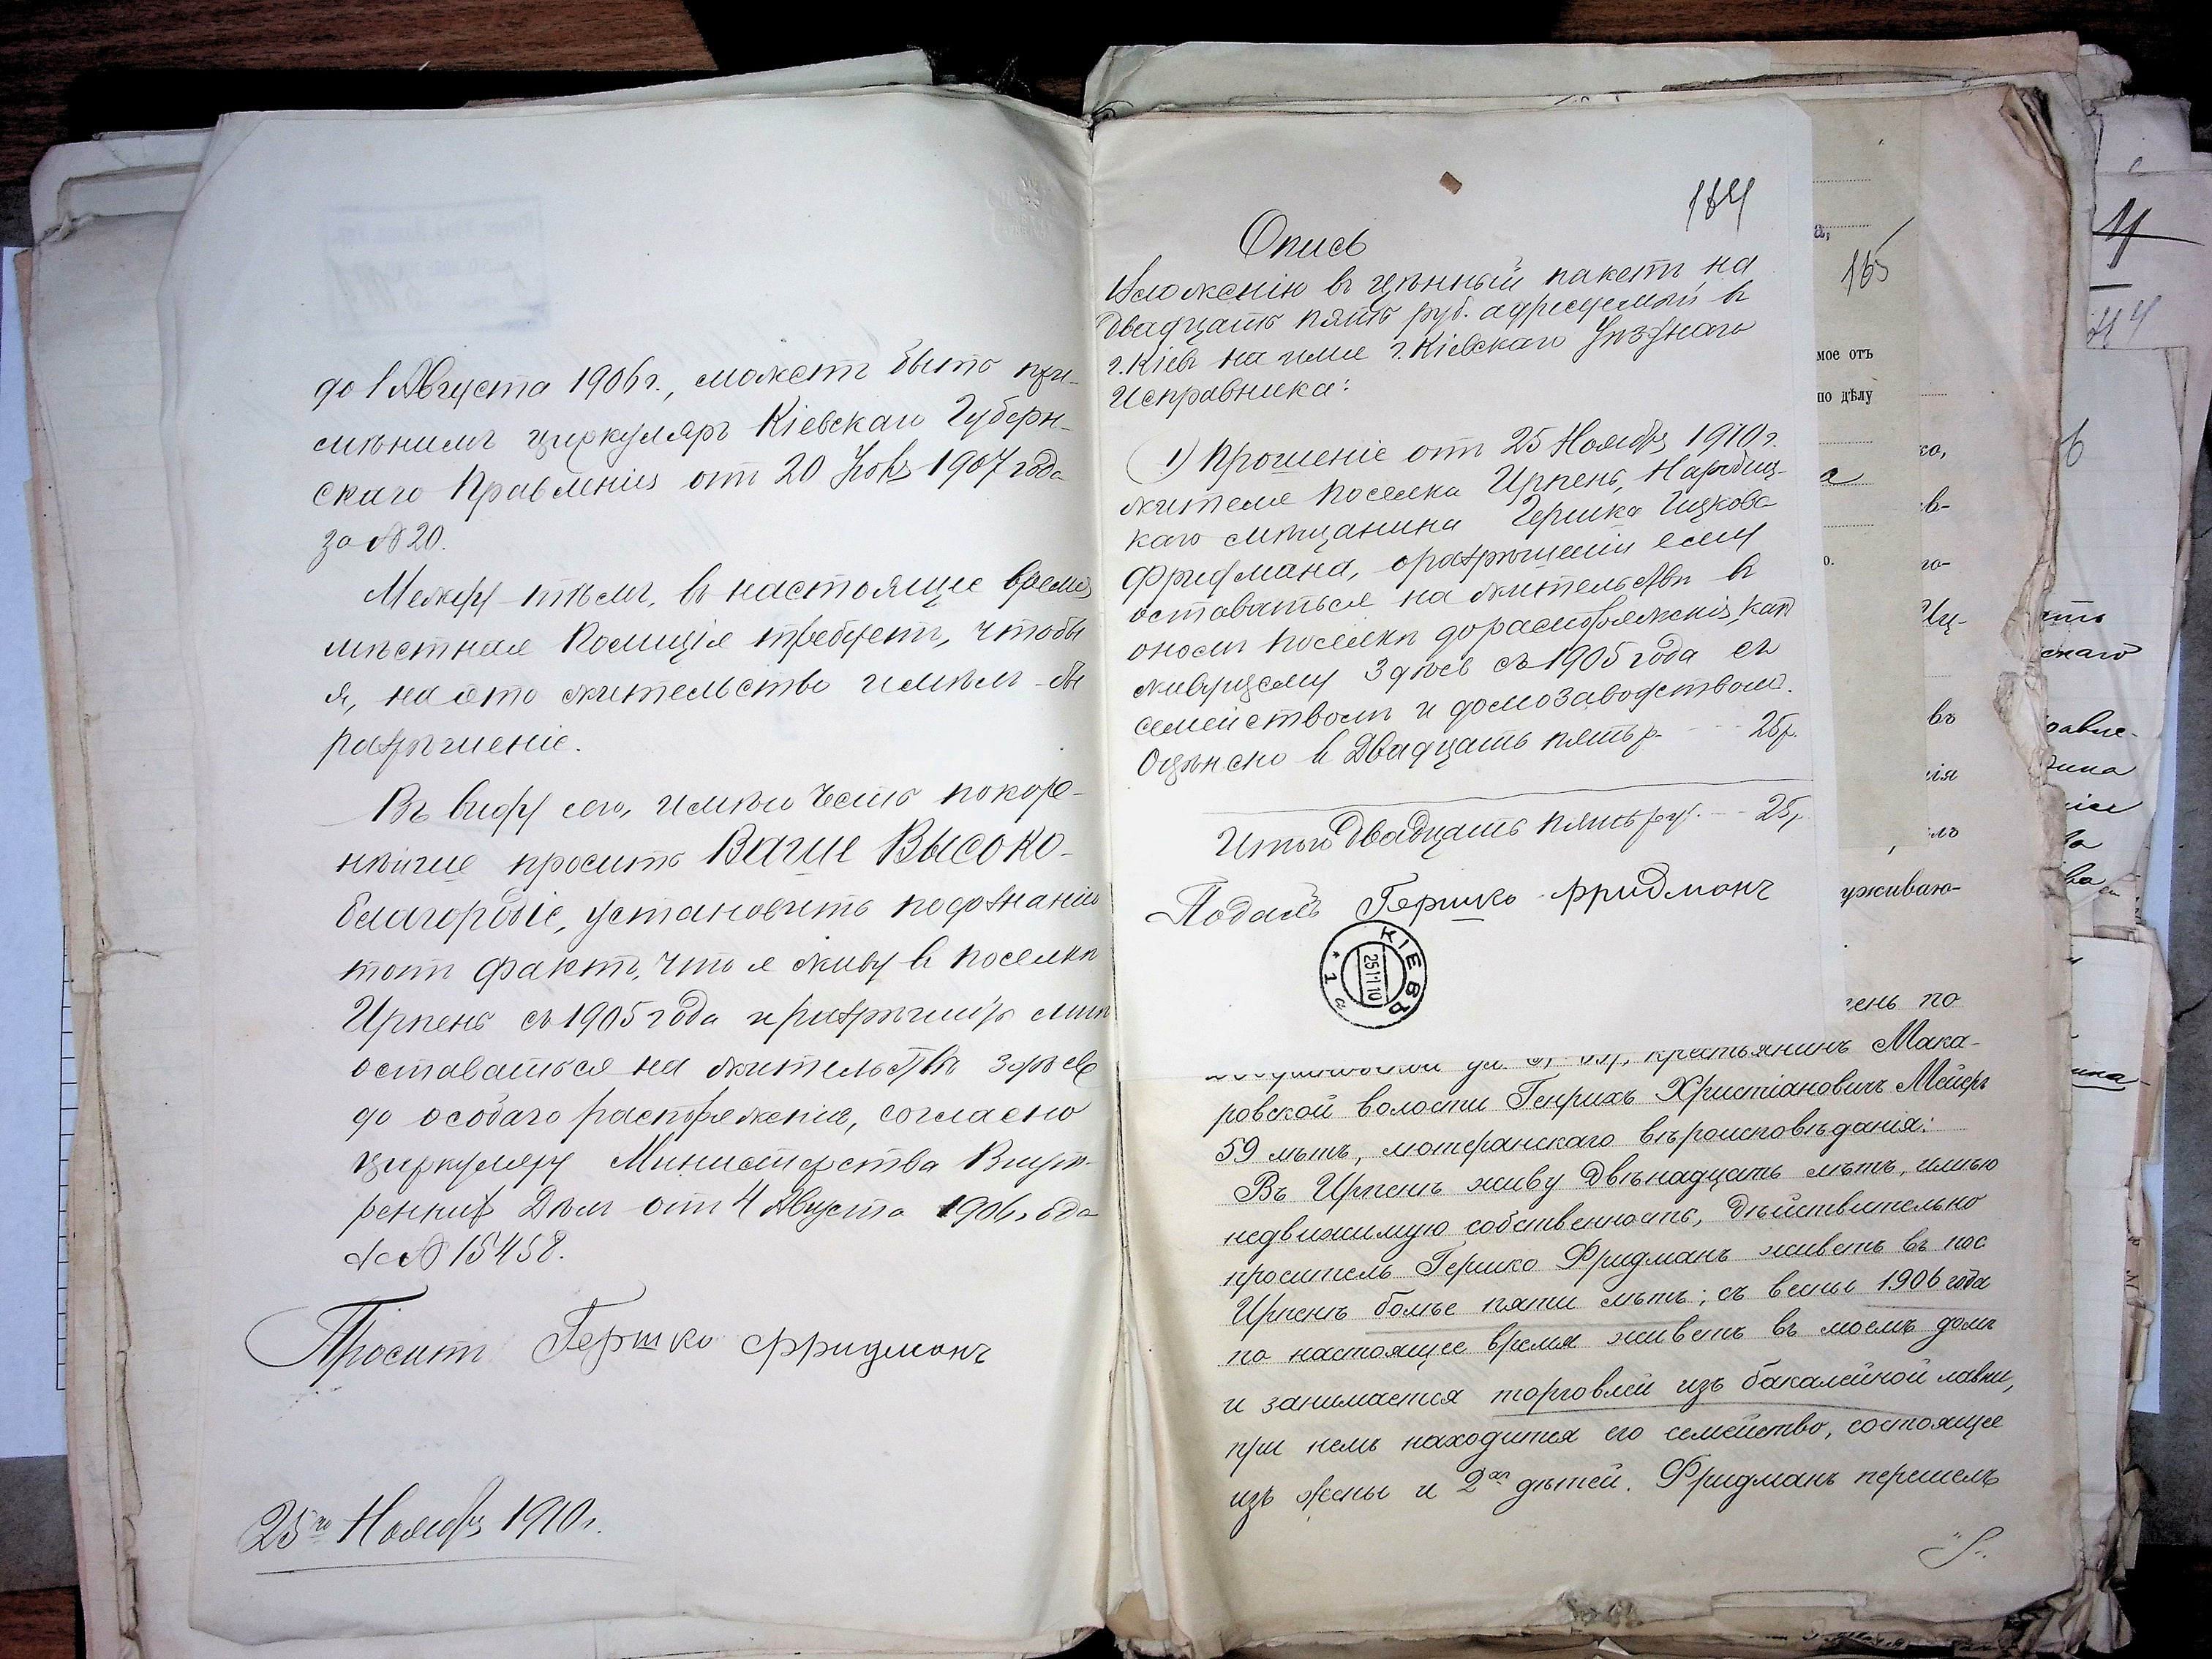 до 1 Августа 1906 г., можетъ быть при-
мѣнимъ циркуляръ Кіевскаго Губерн-
скаго Правленія отъ 20 1907 года
за № 20.
Между-тѣмъ, въ настоящее время
мѣстная Полиція требуетъ, чтобы
я, на это жительство имѣлъ-бы
разрѣшеніе.
Въ виду сего, имѣю честь покор-
нѣйше просить Ваше Высоко-
благородіе, установить подознаніи
тотъ фактъ, что я живу въ поселкѣ
Ирпень съ 1905 года и разрѣшить мнѣ
оставаться на жительствѣ здѣсь
до особаго распоряженія, согласно
циркуляру Министерства Внут-
реннихъ Дѣлъ отъ 4 Августа 1906 года
за № 15458.
Проситъ Гершко Фридманъ
25го Ноября 1910 г.
164
Опись
вложенію въ цѣнный пакетъ на
двадцать пять руб. адресуемый въ
г. Кіевъ на имя г. Кіевскаго Уѣзднаго
Исправника:
1) Прошеніе отъ 25 Ноября 1910 г.
жителя поселка Ирпень,
каго мѣщанина Гершка Ицкова
Фридмана, о разрѣшеніи ему
оставаться на жительствѣ въ
ономъ поселкѣ до распоряженія, какъ
живущему здѣсь съ 1905 года съ
семействомъ и домозаводствомъ.
Оцѣнено въ Двадцать пять р. - - - 25 р.
Итого Двадцать пять руб. - - - 25 р.
Подалъ Гершко Фридманъ
КІЕВЪ
25.11.10
1
165
мое отъ
по дѣлу
уживаю-
ень по
крестьянинъ Мака-
ровской волости Генрихъ Христіановичъ Мейеръ
59 лѣтъ, лютеранскаго вѣроисповѣданія:
Въ Ирпенѣ живу двѣнадцать лѣтъ, имѣю
недвижимую собственность, дѣйствительно
проситель Гершко Фридманъ живетъ въ пос
Ирпенѣ болѣе пяти лѣтъ; съ весны 1906 года
по настоящее время живетъ въ моемъ домѣ
и занимается торговлей изъ бакалейной лавки,
при немъ находится его семейство, состоящее
изъ жены и 2хъ дѣтей. Фридманъ перешелъ